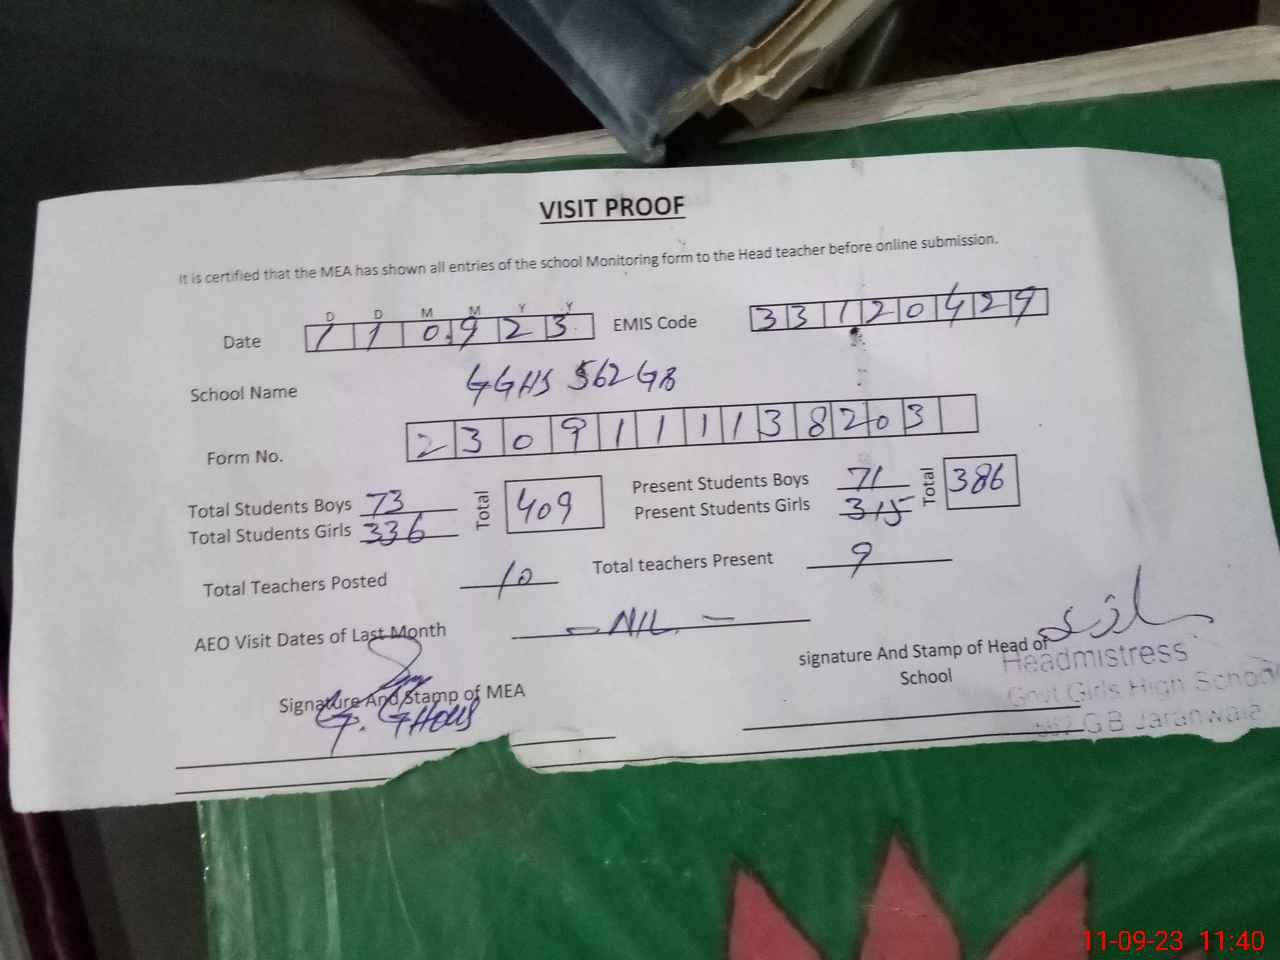 VISIT PROOF
It is certified that the MEA has shown all entries of the school Monitoring form to the Head teacher before online submission.
D D M M Y Y
Date 1 1 0 9 2 3 EMIS Code 3 3 1 2 0 4 2 9
School Name GGHS 562 GB
Form No. 2 3 0 9 1 1 1 1 3 8 2 0 3
Total Students Boys 73 Total 409 Present Students Boys 71 Total 386
Total Students Girls 336 Present Students Girls 315
Total Teachers Posted 10 Total teachers Present 9
AEO Visit Dates of Last Month - NIL -
Signature And Stamp of MEA signature And Stamp of Head of School
G. GHOUS
Headmistress
Govt Girls High School
562 G B Jaranwala
11-09-23 11:40